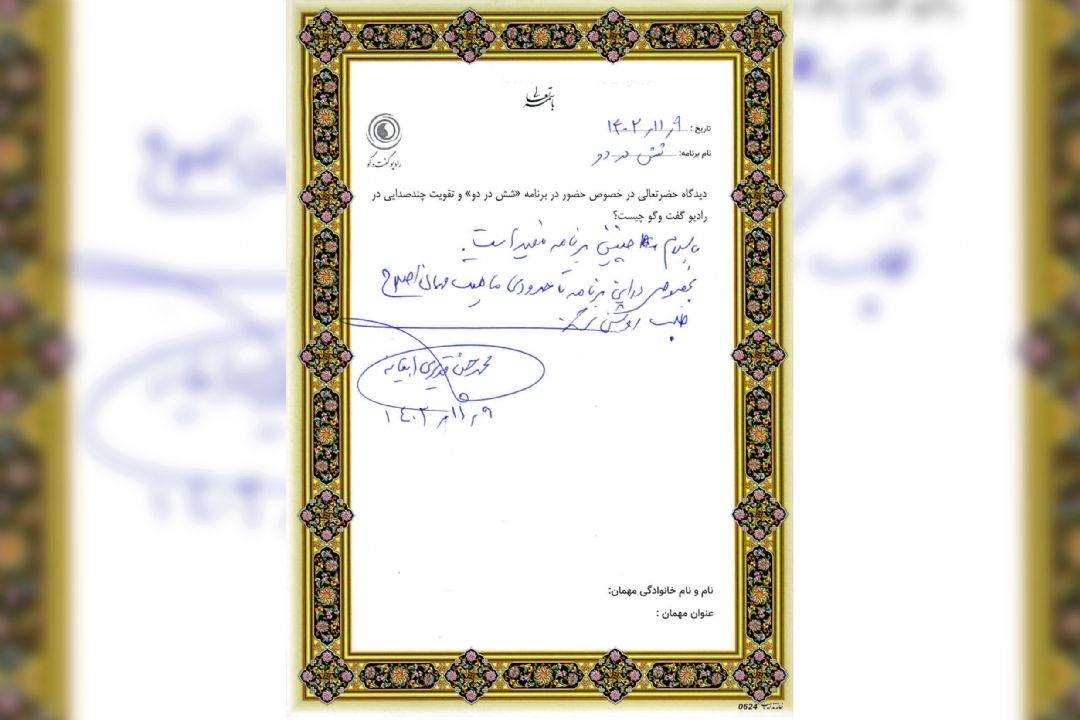 باسمه تعالی
رادیو گفت و گو
تاریخ: ۹ ر ۱۱ ر ۱۴۰۲
نام برنامه: شش در دو
دیدگاه حضرتعالی در خصوص حضور در برنامه «شش در دو» و تقویت چندصدایی در
رادیو گفت وگو چیست؟
با سلام چنین برنامه مفید است.
بخصوص در این برنامه تا حدودی ماهیت مهمان اصلاح
طلب روشن تر گشت
محمدحسن قدیری ابیانه
۹ ر ۱۱ ر ۱۴۰۲
نام و نام خانوادگی مهمان:
عنوان مهمان :
0624